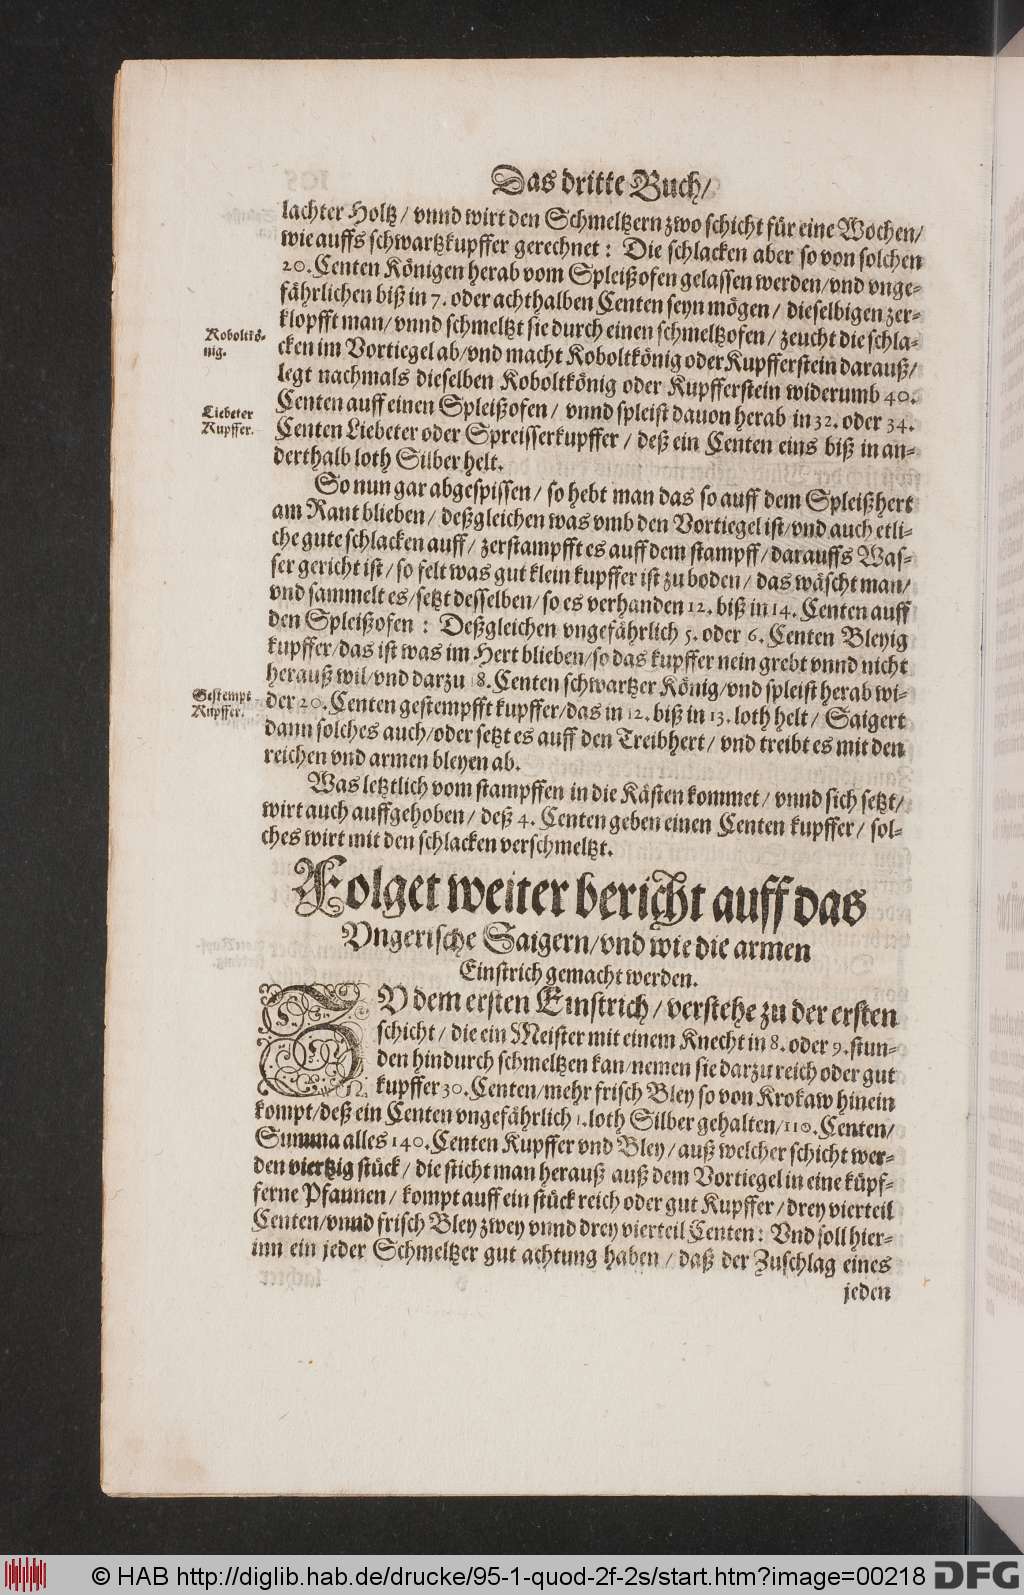 Das dritte Buch/
lachter Holtz/ vnnd wirt den Schmeltzern zwo schicht für eine Wochen/
wie auffs schwartzkupffer gerechnet: Die schlacken aber so von solchen
20. Centen Königen herab vom Spleißofen gelassen werden/vnd vnge-
fährlichen biß in 7. oder achthalben Centen seyn mögen/ dieselbigen zer-
klopfft man/ vnnd schmeltzt sie durch einen schmeltzofen/ zeucht die schla-
Koboltkö-
nig.
cken im Vortiegel ab/vnd macht Koboltkönig oder Kupfferstein darauß/
legt nachmals dieselben Koboltkönig oder Kupfferstein widerumb 40.
Centen auff einen Spleißofen/ vnnd spleist dauon herab in 32. oder 34.
Liebeter
Kupffer.
Centen Liebeter oder Spreisserkupffer/ deß ein Centen eins biß in an-
derthalb loth Silber helt.
So nun gar abgespissen/ so hebt man das so auff dem Spleißhert
am Rant blieben/ deßgleichen was vmb den Vortiegel ist/vnd auch etli-
che gute schlacken auff/ zerstampfft es auff dem stampff/ darauffs Was-
ser gericht ist/ so felt was gut klein kupffer ist zu boden/ das wäscht man/
vnd sammelt es/setzt desselben/ so es verhanden 12. biß in 14. Centen auff
den Spleißofen: Deßgleichen vngefährlich 5. oder 6. Centen Bleyig
kupffer/das ist was im Hert blieben/so das kupffer nein grebt vnnd nicht
herauß wil/vnd darzu 18. Centen schwartzer König/vnd spleist herab wi-
Gestempt
Kupffer.
der 20. Centen gestempfft kupffer/das in 12. biß in 13. loth helt/ Saigert
dann solches auch/oder setzt es auff den Treibhert/ vnd treibt es mit den
reichen vnd armen bleyen ab.
Was letztlich vom stampffen in die Kästen kommet/ vnnd sich setzt/
wirt auch auffgehoben/ deß 4. Centen geben einen Centen kupffer/ sol-
ches wirt mit den schlacken verschmeltzt.
Folget weiter bericht auff das
Vngerische Saigern/vnd wie die armen
Einstrich gemacht werden.
ZV dem ersten Einstrich/ verstehe zu der ersten
schicht/ die ein Meister mit einem Knecht in 8. oder 9. stun-
den hindurch schmeltzen kan/nemen sie darzu reich oder gut
kupffer 30. Centen/mehr frisch Bley so von Krokaw hinein
kompt/deß ein Centen vngefährlich 1. loth Silber gehalten/110. Centen/
Summa alles 140. Centen Kupffer vnd Bley/ auß welcher schicht wer-
den viertzig stück/ die sticht man herauß auß dem Vortiegel in eine küpf-
ferne Pfannen/ kompt auff ein stück reich oder gut Kupffer/ drey vierteil
Centen/vnnd frisch Bley zwey vnnd drey vierteil Centen: Vnd soll hier-
inn ein jeder Schmeltzer gut achtung haben/ daß der Zuschlag eines
jeden
© HAB http://diglib.hab.de/drucke/95-1-quod-2f-2s/start.htm?image=00218
DFG